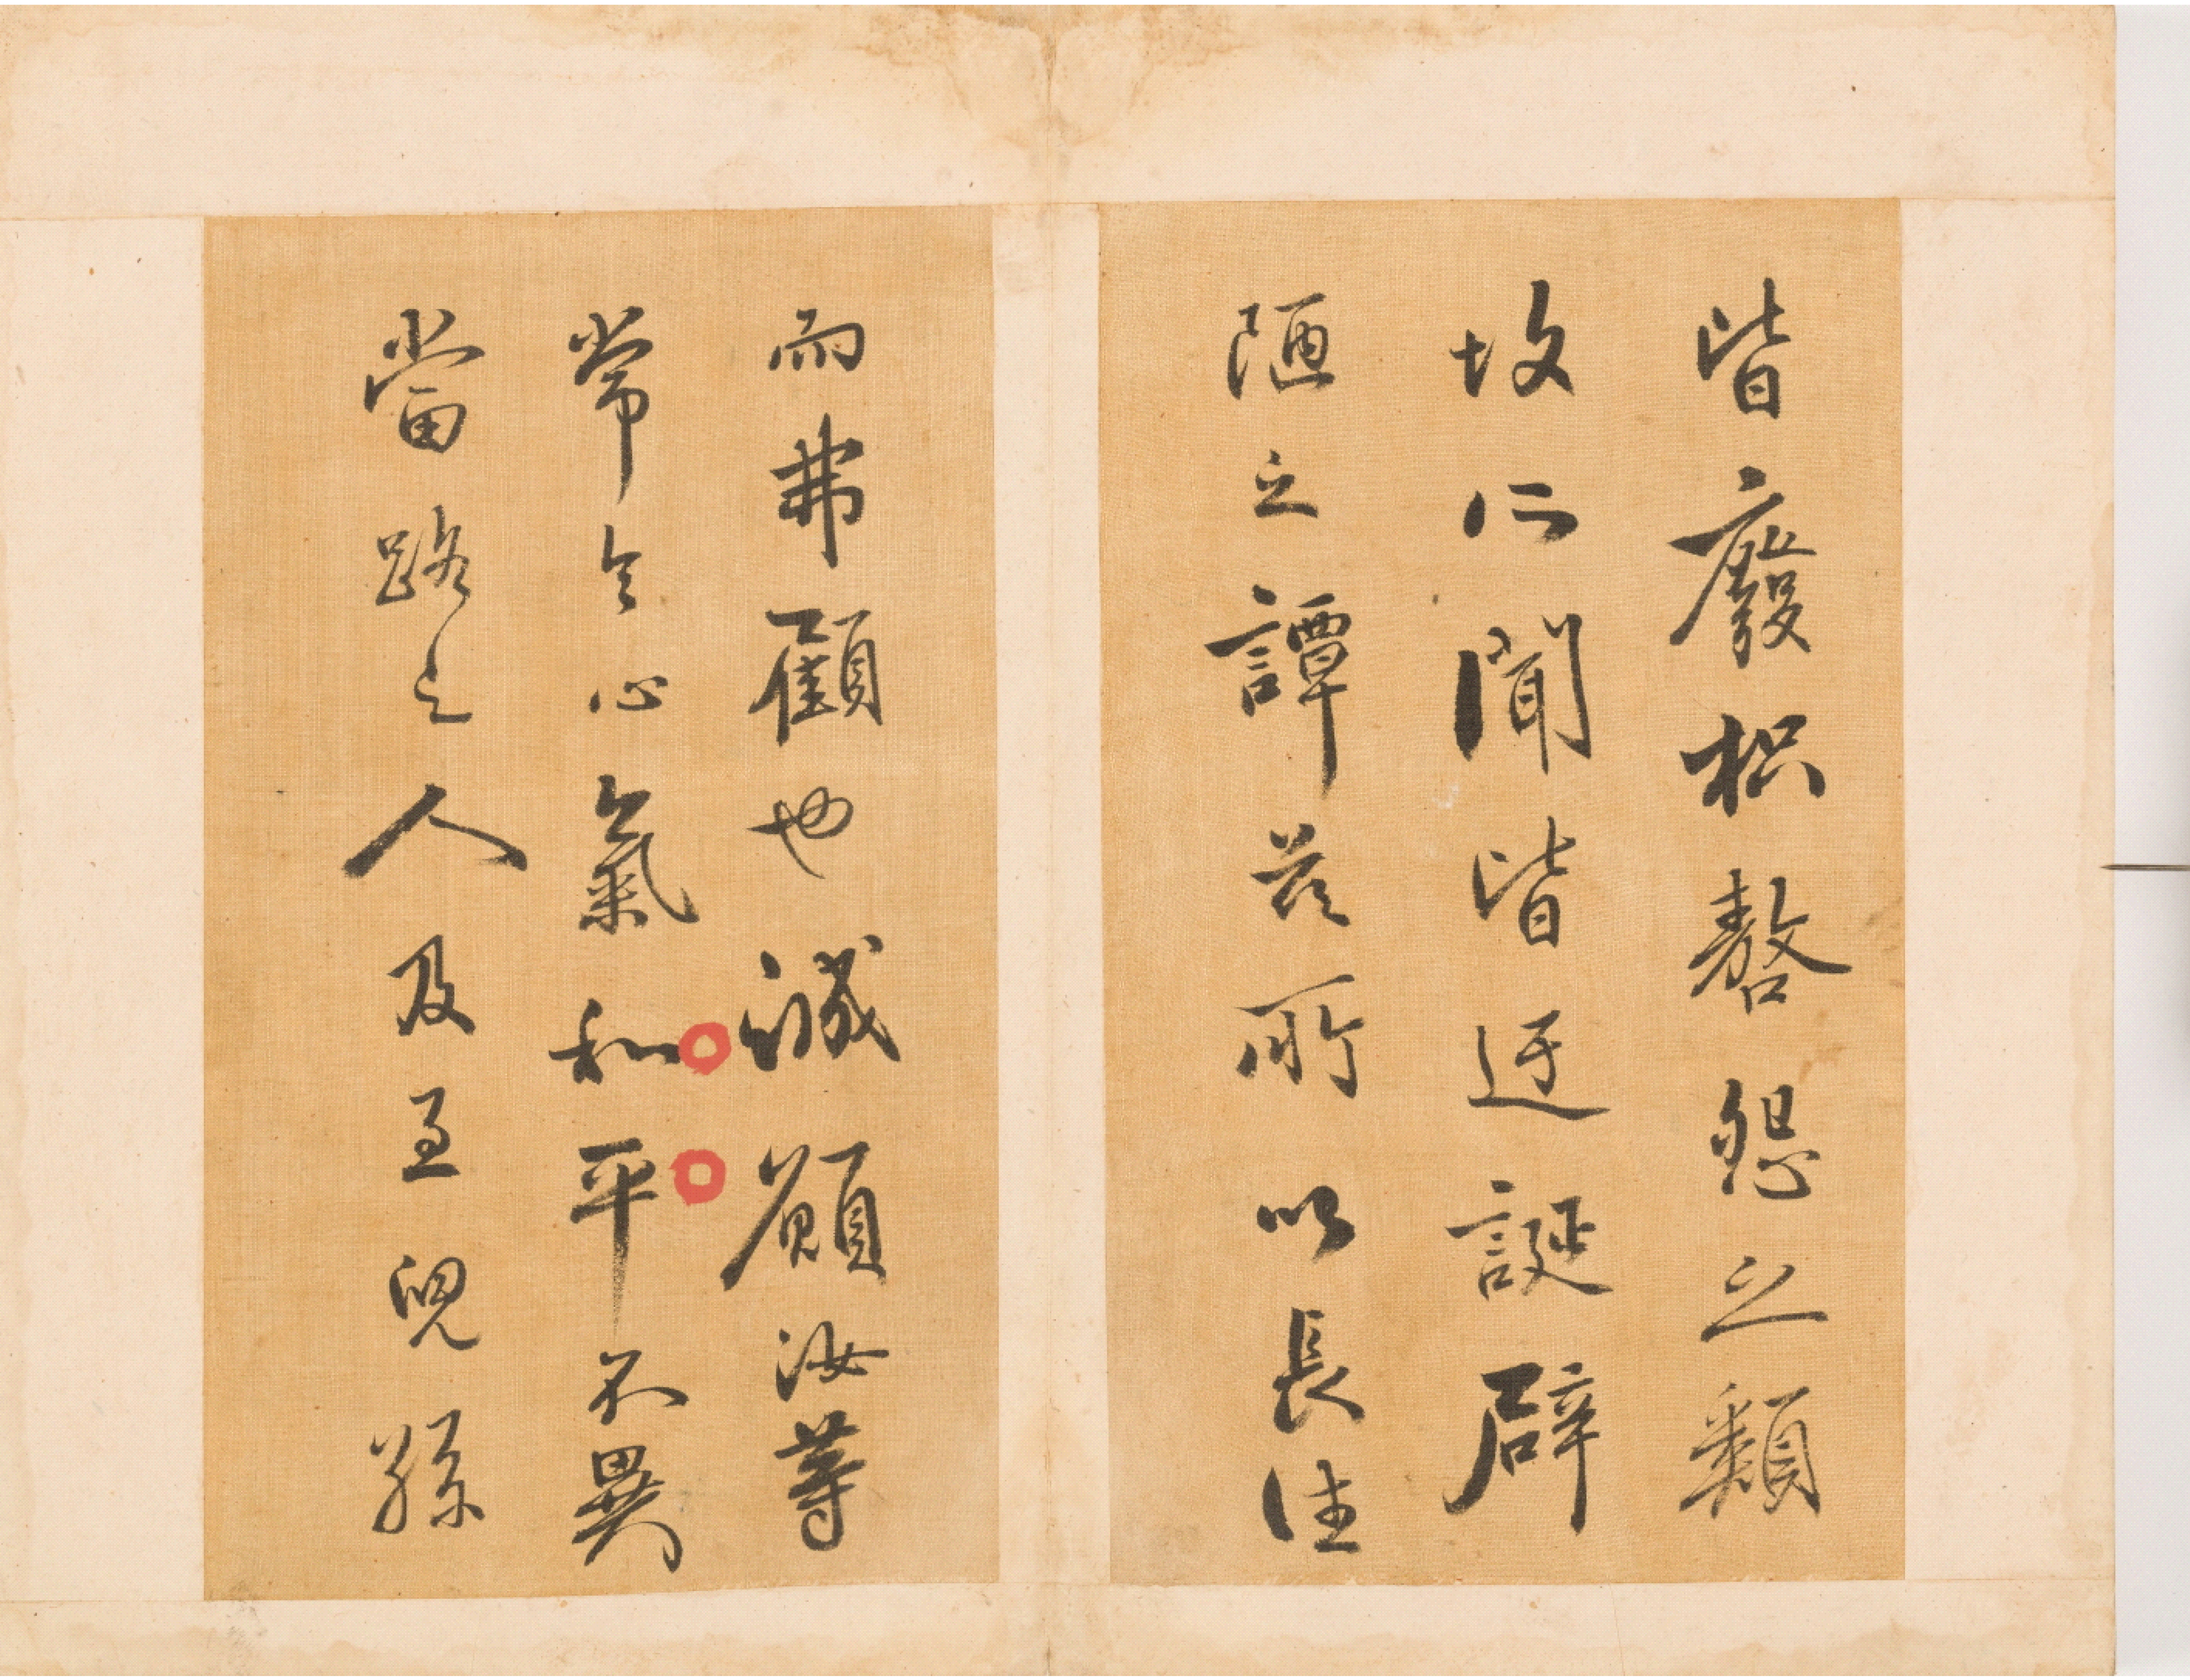 皆廢枳嗸怨之類
故所聞皆迂誕辟
陋之譚茲所以長往
而弗顧也誠願汝等
常令心氣和平不異
當路之人及至兒孫